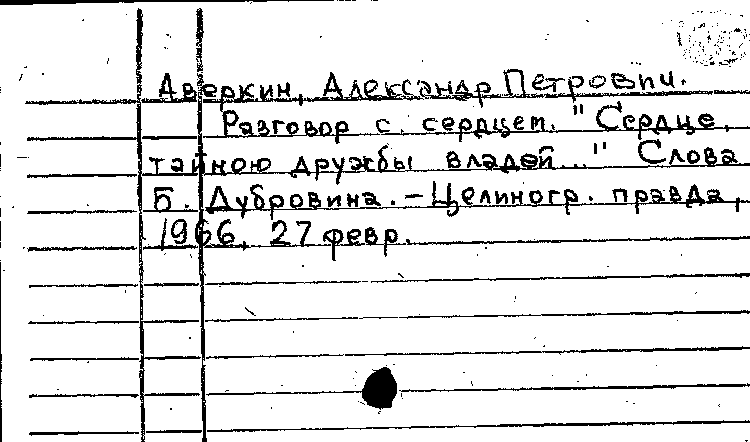 Аверкин, Александр Петрович.
Разговор с сердцем. "Сердце,
тайною дружбы владей..." Слова
Б. Дубровина. — Целиногр. правда,
1966, 27 февр.